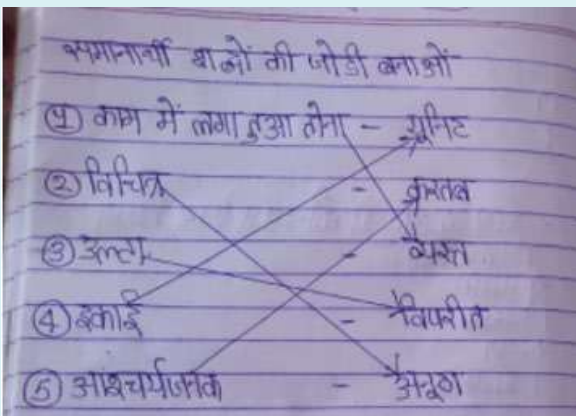 समानार्थी शब्दों की जोडी बनाओं
(१) काम में लगा हुआ होना - यूनिट
(२) विचित्र - करतब
(३) उल्टा - व्यस्त
(४) इकाई - विपरीत
(५) आश्चर्यजनक - अनूठा